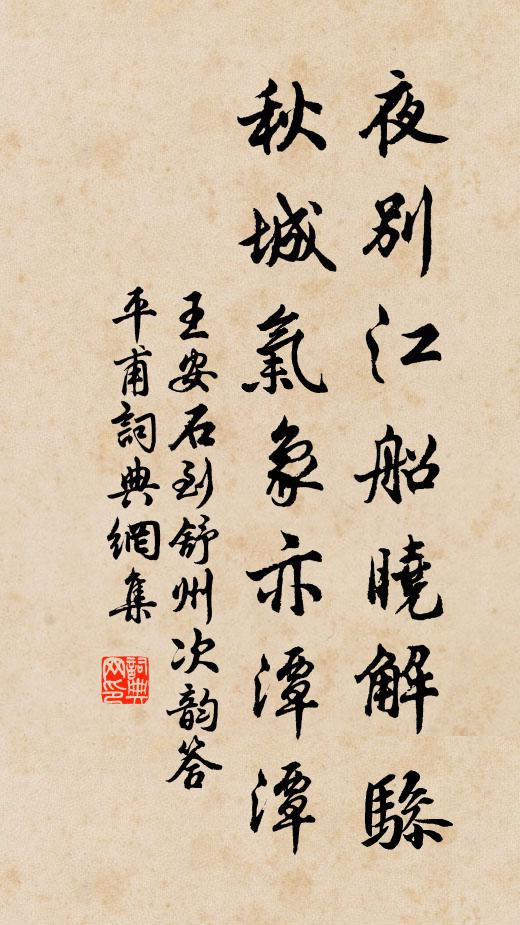 夜別江船曉解驂
秋城氣象亦潭潭
王安石到舒州次韵答
平甫詞典網集
詞典网印